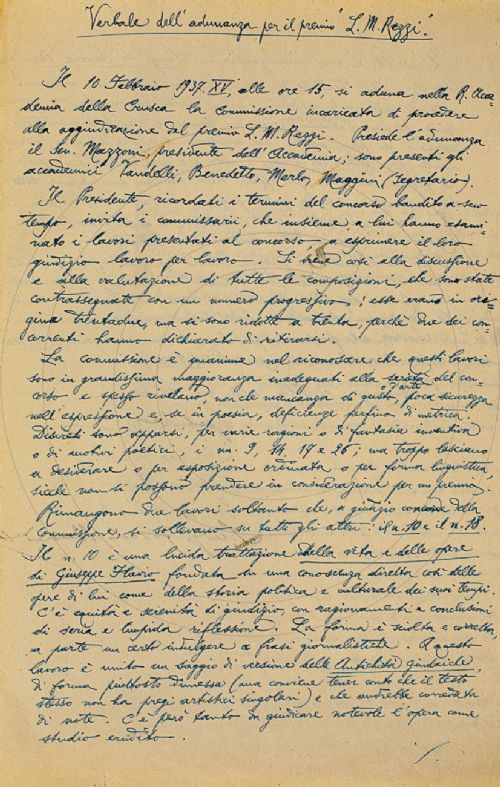 Verbale dell'adunanza per il premio "L. M. Rezzi".
Il 10 Febbraio 1937. XV, alle ore 15, si aduna nella R. Acca-
demia della Crusca la Commissione incaricata di procedere
alla aggiudicazione del premio L. M. Rezzi. Presiede l'adunanza
il Sen. Mazzoni, presidente dell'Accademia; sono presenti gli
accademici Vandelli, Benedetto, Merlo, Maggini (segretario).
Il Presidente, ricordati i termini del concorso bandito a suo
tempo, invita i commissarii, che insieme a lui hanno esami-
nato i lavori presentati al concorso, a esprimere il loro
giudizio lavoro per lavoro. Si viene così alla discussione
e alla valutazione di tutte le composizioni, che sono state
contrassegnate con un numero progressivo; esse erano in ori-
gine trentadue, ma si sono ridotte a trenta, perchè due dei con-
correnti hanno dichiarato di ritirarsi.
La commissione è unanime nel riconoscere che questi lavori
sono in grandissima maggioranza inadeguati alla serietà del con-
corso e spesso rivelano, non che mancanza di gusto, o d'arte, poca sicurezza
nell'espressione e, se in poesia, deficienze perfino di metrica.
Discreti sono apparsi, per varie ragioni o di fantasia inventiva
o di motivi poetici, i nn. 9, 14, 19 e 26; ma troppo lasciano
a desiderare o per esposizione ordinata o per forma linguistica,
sicchè non si possono prendere in considerazione per un premio.
Rimangono due lavori soltanto che, a giudizio concorde della
Commissione, si sollevano su tutti gli altri: il n. 10 e il n. 18.
Il n. 10 è una lucida trattazione della vita e delle opere
di Giuseppe Flavio fondata su una conoscenza diretta così delle
opere di lui come della storia politica e culturale dei suoi tempi.
C'è equità e serenità di giudizio, con ragionamenti e conclusioni
di seria e limpida riflessione. La forma è sciolta e corretta,
a parte un certo indulgere a frasi giornalistiche. A questo
lavoro è unito un saggio di versione delle Antichità Giudaiche,
di forma piuttosto dimessa (ma conviene tener conto che il testo
stesso non ha pregi artistici singolari) e che andrebbe corredata
di note. C'è però tanto da giudicare notevole l'opera come
studio erudito.